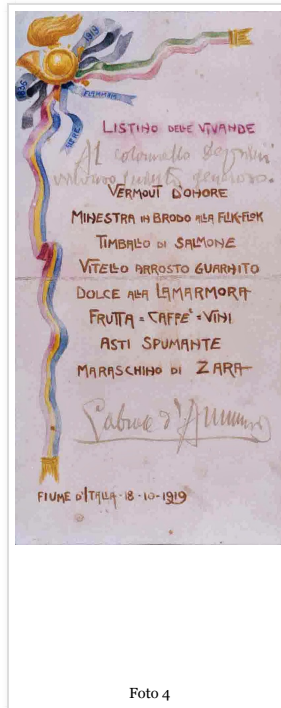 1919
FIAMMA
NERE
LISTINO DELLE VIVANDE
Al colonnello
VERMOUT D'ONORE
MINESTRA IN BRODO ALLA FLIK-FLOK
TIMBALLO DI SALMONE
VITELLO ARROSTO GUARNITO
DOLCE ALLA LAMARMORA
FRUTTA = CAFFE' = VINI
ASTI SPUMANTE
MARASCHINO DI ZARA
Gabriele d'Annunzio
FIUME D'ITALIA - 18 - 10 - 1919
Foto 4